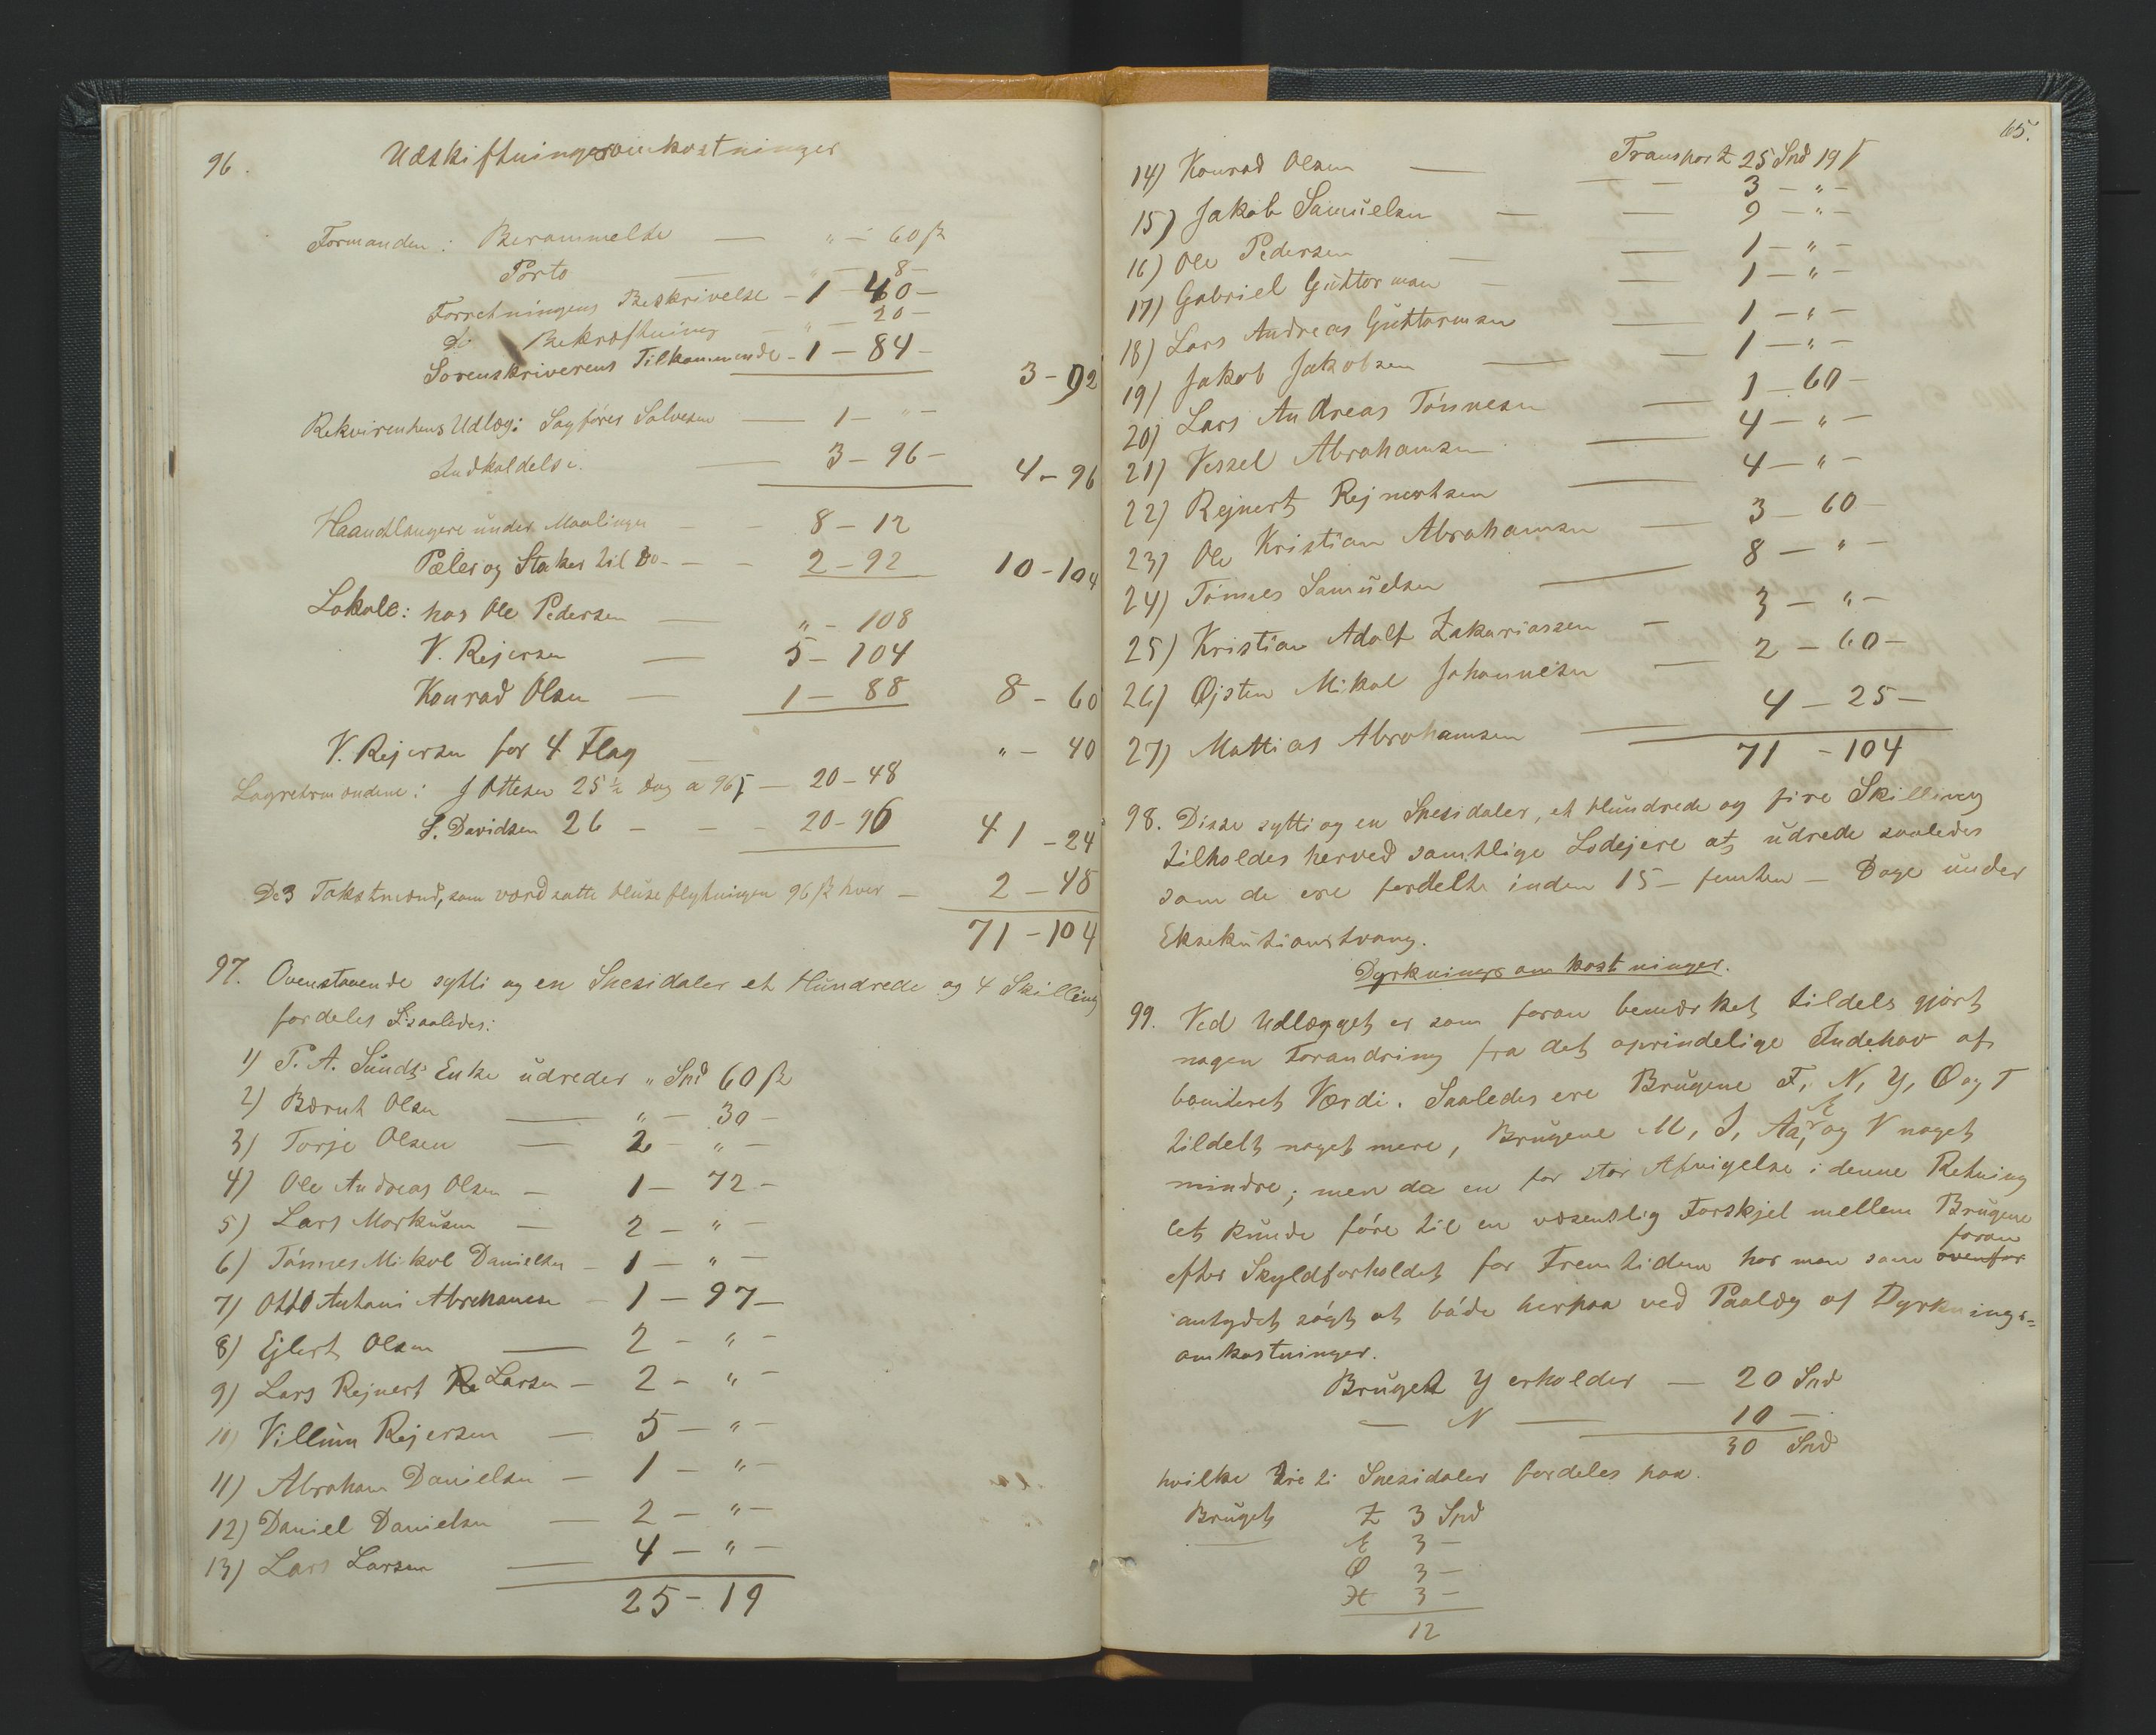 96. Udskiftningsomkostninger
Formanden: Berammelse — " — 60 ß
Porto — " — 8 —
Forretningens Beskrivelse — 1 — 40 —
Do Bekræftning — " — 20 —
Sorenskriverens Tilkommende — 1 — 84 — 3 — 92
Rekvirentens Udlæg: Sagfører Salvesen — 1 — " —
Indkaldelse. — 3 — 96 — 4 — 96
Haandlangere under Maalingen — — 8 — 12
Pæler og Staker til Do — — 2 — 92 10 — 104
Lokale: hos Ole Pedersen — " — 108
V. Rejersen — 5 — 104
Konrad Olsen — 1 — 88 8 — 60
V. Rejersen for 4 Flag — " — 40
Lagrettemændene: J Ottesen 25½ Dag a 96 ß — 20 — 48
S. Davidsen 26 — — — 20 — 96 41 — 24
De 3 Takstmænd, som værdsatte Huseflytningen 96 ß hver — 2 — 48
71 — 104
97. Ovenstaaende sytti og en Spesidaler et Hundrede og 4 Skilling
fordeles saaledes:
1) P. A. Sunds Enke udreder " Spd 60 ß
2) Bærnt Olsen — " — 30 —
3) Torje Olsen — 2 — " —
4) Ole Andreas Olsen — 1 — 72 —
5) Lars Markusen — 2 — " —
6) Tønnes Mikal Danielsen — 1 — " —
7) Otto Antoni Abrahamsen — 1 — 97 —
8) Ejlert Olsen — 2 — " —
9) Lars Rejnert Re Larsen — 2 — " —
10) Villum Rejersen — 5 — " —
11) Abraham Danielsen — 1 — " —
12) Daniel Danielsen — 2 — " —
13) Lars Larsen — 4 — " —
25 — 19
65.
Transport 25 Spd 19 ß
14) Konrad Olsen — 3 — " —
15) Jakob Samuelsen — 9 — " —
16) Ole Pedersen — 1 — " —
17) Gabriel Guttormsen — 1 — " —
18) Lars Andreas Guttormsen — 1 — " —
19) Jakob Jakobsen — 1 — " —
20) Lars Andreas Tønnesen — 1 — 60 —
21) Vessel Abrahamsen — 4 — " —
22) Rejnert Rejnertsen — 4 — " —
23) Ole Kristian Abrahamsen — 3 — 60 —
24) Tønnes Samuelsen — 8 — " —
25) Kristian Adolf Zakariassen — 3 — " —
26) Øjsten Mikal Johannesen — 2 — 60 —
27) Mattias Abrahamsen — 4 — 25 —
71 — 104
98. Disse sytti og en Spesidaler, et Hundrede og fire Skilling
tilholdes herved samtlige Lodejere at udrede saaledes
som de ere fordelte inden 15 — femten — Dage under
Eksekutionstvang.
Dyrkningsomkostninger.
99. Ved Udlægget er som foran bemærket tildels gjort
nogen Forandring fra det oprindelige Indehav af
boniteret Værdi. Saaledes ere Brugene F, N, Y, Ø og T
tildelt noget mere, Brugene M, I, Aa, Æ og V noget
mindre; men da en for stor Afvigelse i denne Retning
let kunde føre til en væsentlig Forskjel mellem Brugene
efter Skyldforholdet for Fremtiden har man som ovenfor foran
antydet søgt at bøde herpaa ved Paalæg af Dyrknings=
omkostninger.
Bruget Y erholder — 20 Spd
— N — 10 —
30 Spd
hvilke treti Spesidaler fordeles paa.
Bruget Z 3 Spd
— Æ 3 —
Ø 3 —
H 3 —
12